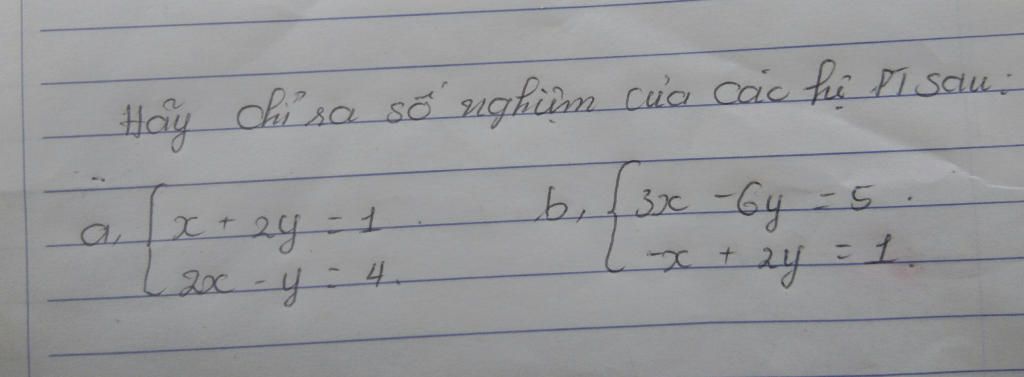 Hãy chỉ ra số nghiệm của các hệ PT sau:
a, { x + 2y = 1 . b, { 3x - 6y = 5 .
2x - y = 4. -x + 2y = 1.